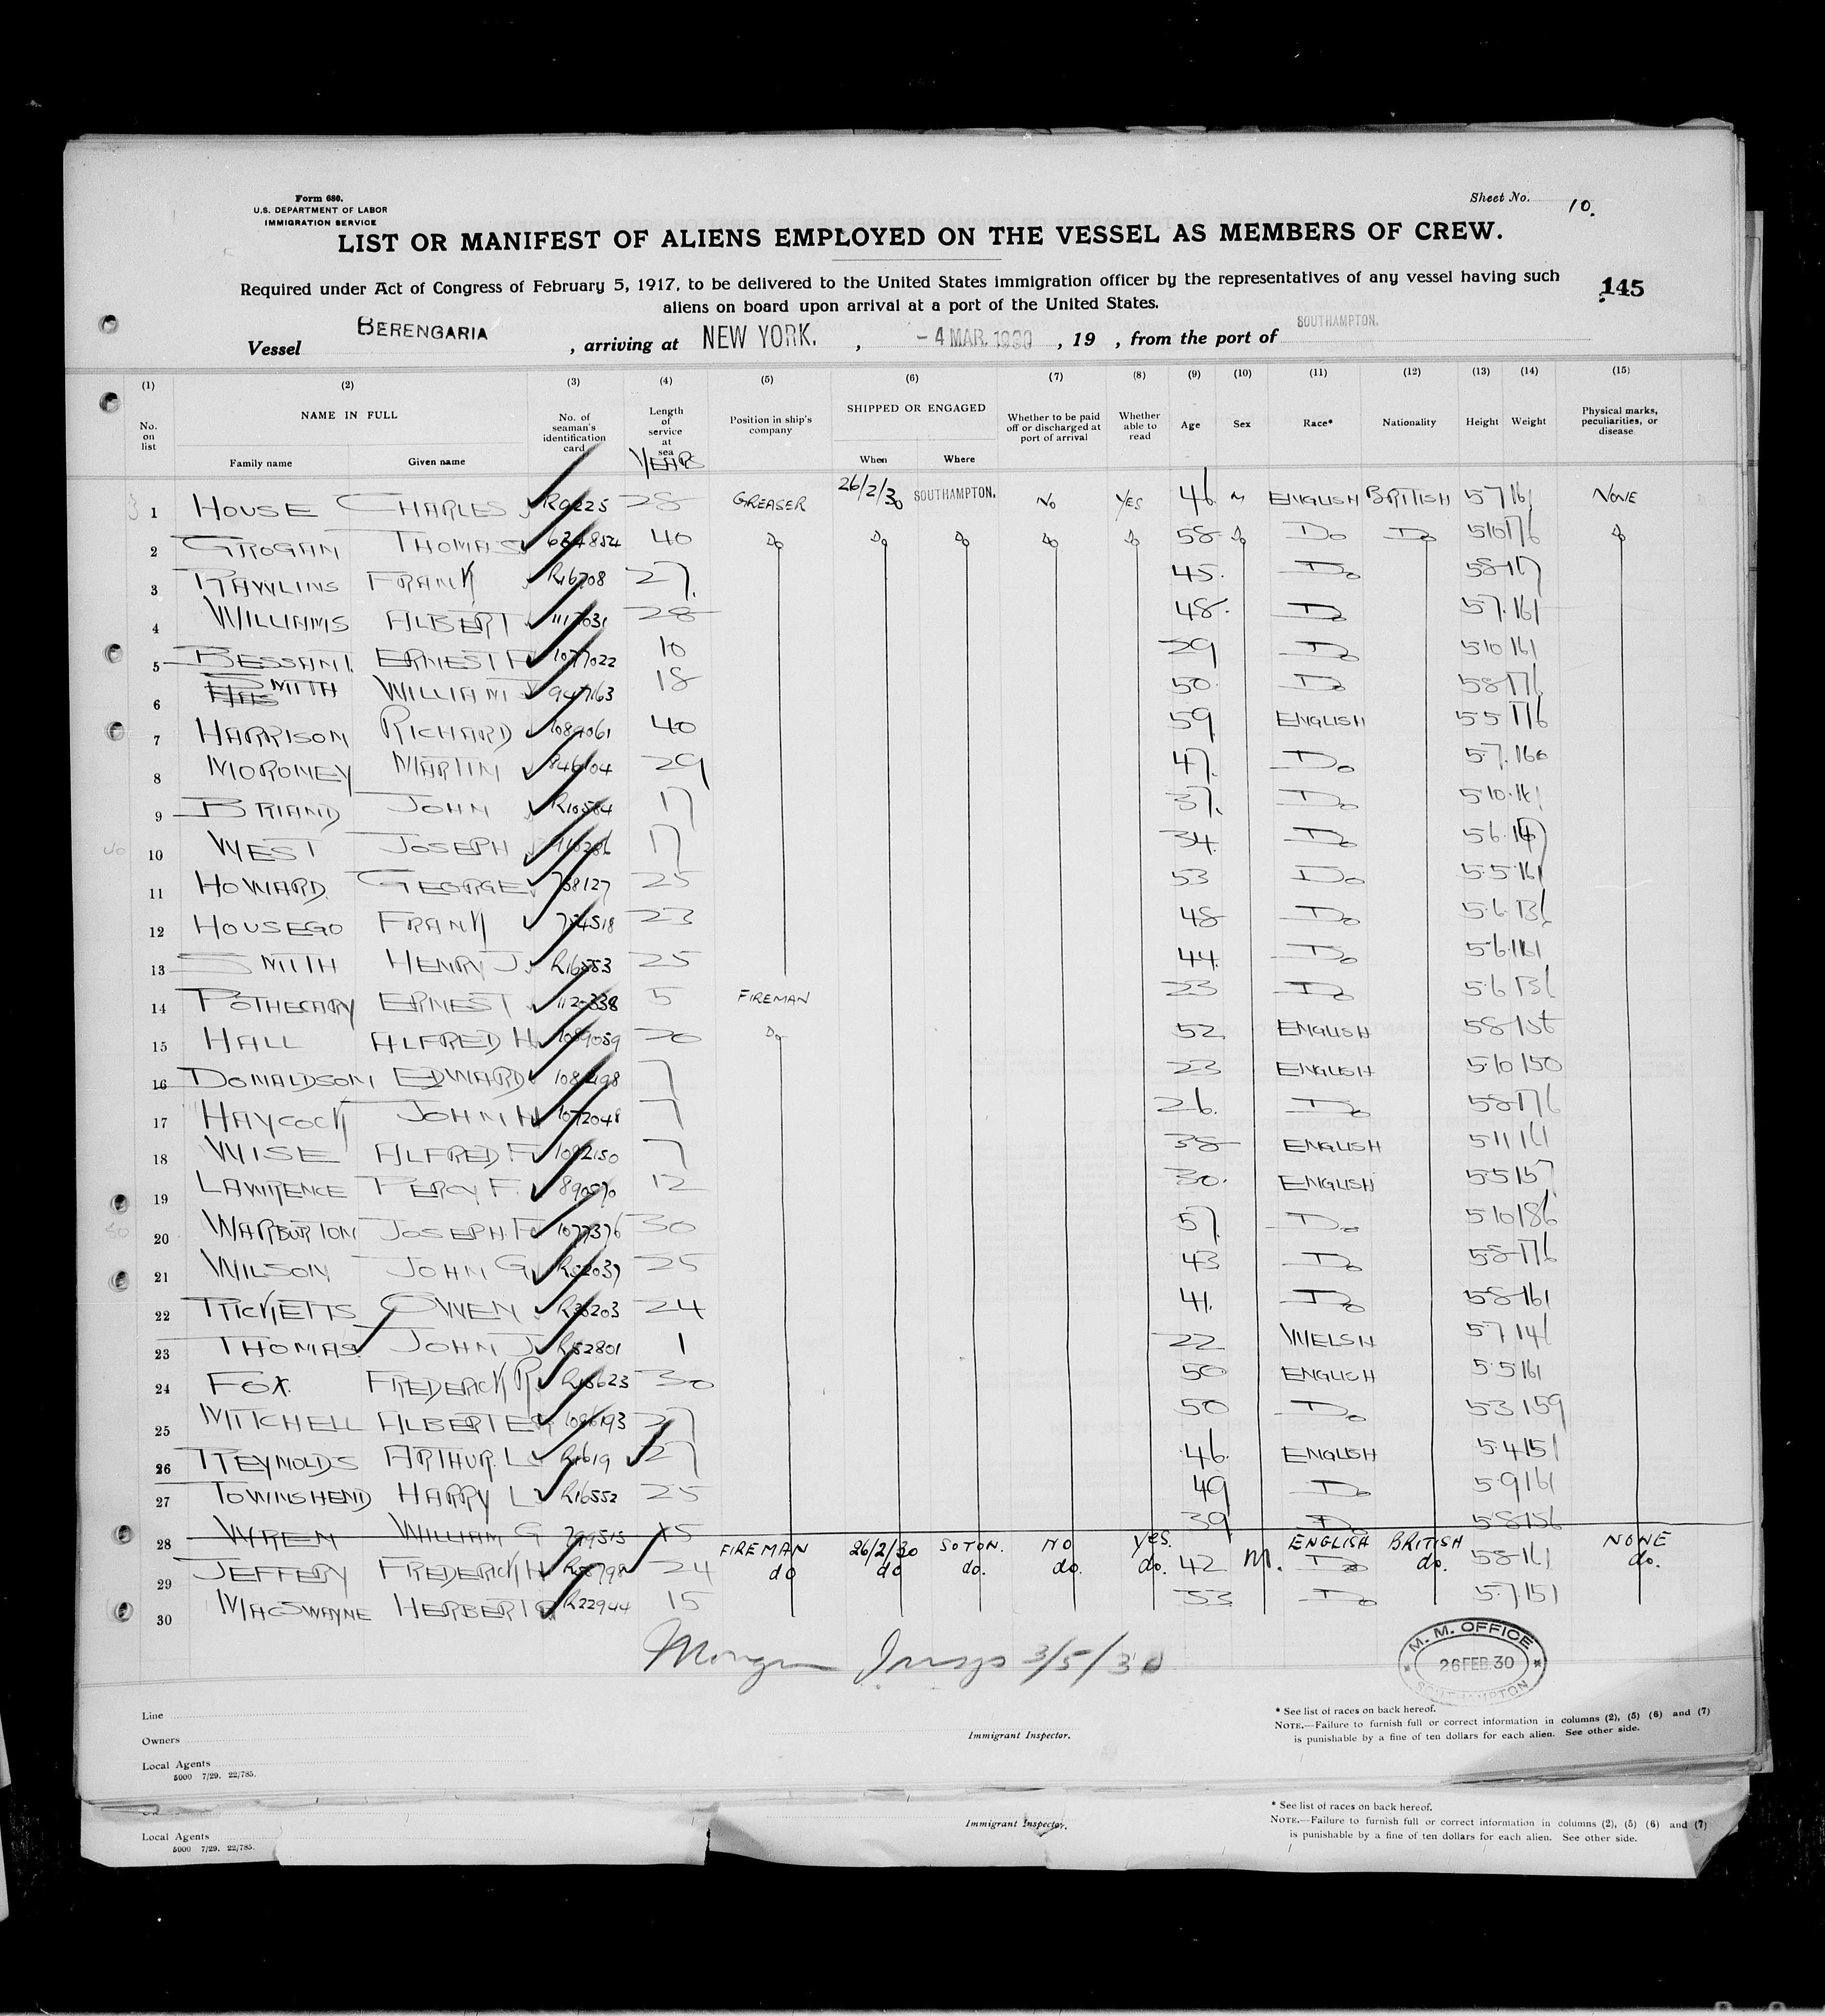 Form 680.
U.S. DEPARTMENT OF LABOR
IMMIGRATION SERVICE
Sheet No. 10.
LIST OR MANIFEST OF ALIENS EMPLOYED ON THE VESSEL AS MEMBERS OF CREW.
Required under Act of Congress of February 5, 1917, to be delivered to the United States immigration officer by the representatives of any vessel having such
aliens on board upon arrival at a port of the United States.
145
Vessel BERENGARIA, arriving at NEW YORK., - 4 MAR. 1930, 19 , from the port of SOUTHAMPTON.
(1) (2) (3) (4) (5) (6) (7) (8) (9) (10) (11) (12) (13) (14) (15)
No. on list NAME IN FULL Family name Given name No. of seaman's identification card Length of service at sea YEARS Position in ship's company SHIPPED OR ENGAGED When Where Whether to be paid off or discharged at port of arrival Whether able to read Age Sex Race* Nationality Height Weight Physical marks, peculiarities, or disease
1 HOUSE CHARLES 28 GREASER 26/2/30 SOUTHAMPTON. NO YES 46 M ENGLISH BRITISH 57 161 NONE
2 GROGAN THOMAS 634854 40 Do Do Do Do Do 58 Do Do Do 510 176 Do
3 RAWLINS FRANK R16708 27. 45. Do 58
4 WILLIAMS ALBERT 28 48. Do 57. 161
5 BESSANT ERNEST 1077022 10 29 Do 510 161
6 SMITH WILLIAM 947163 18 50. Do 58 176
7 HARRISON RICHARD 1089061 40 59 ENGLISH 55 176
8 MORONEY MARTIN 846104 29 47. Do 57. 160
9 BRIAND JOHN R10584 17 37. Do 510. 161
10 WEST JOSEPH 17 34. Do 56. 147
11 HOWARD. GEORGE 758127 25 53 Do 5.5 161
12 HOUSEGO FRANK 23 48 Do 5.6. 136
13 SMITH HENRY J. R16553 25 44. Do 56 161
14 POTHECARY ERNEST 1120338 5 FIREMAN 23 Do 5.6 136
15 HALL ALFRED H. 1089059 20 Do 52 ENGLISH 58 156
16 DONALDSON EDWARD 7 23 ENGLISH 5.10 150
17 HAYCOCK JOHN H 1072048 7 26. Do 58 176
18 WISE ALFRED F 1092150 7 38 ENGLISH 511 161
19 LAWRENCE PERCY F. 12 30. ENGLISH 5.5 157
20 WARBURTON JOSEPH. F 1077376 30 57. Do 510 186
21 WILSON JOHN G 25 43 Do 58 176
22 RICKETTS OWEN 24 41. Do 58 161
23 THOMAS. JOHN J R52801 1 22 WELSH 57 146
24 FOX. FREDERICK R. R15623 30 50 ENGLISH 5.5 161
25 MITCHELL ALBERT E 27 50 Do 53 159
26 REYNOLDS ARTHUR. L R1619 27 46. ENGLISH 5.4 151
27 TOWNSHEND HARRY L R16552 25 49 Do 5.9 161
28 WREN WILLIAM G 799515 15 FIREMAN 26/2/30 SOTON. NO yes. 39 ENGLISH Do BRITISH 58 156 NONE
29 JEFFERY FREDERICK H 24 do do do. do. do. 42 M. Do do. 58 161 do.
30 MACSWAYNE HERBERT R22944 15 53 Do 57 151
3/5/30
M. M. OFFICE
26 FEB. 30
SOUTHAMPTON
Line
Owners
Local Agents
5000 7/29. 22/785.
Immigrant Inspector.
* See list of races on back hereof.
NOTE.—Failure to furnish full or correct information in columns (2), (5) (6) and (7)
is punishable by a fine of ten dollars for each alien. See other side.
Local Agents
5000 7/29. 22/785.
Immigrant Inspector.
* See list of races on back hereof.
NOTE.—Failure to furnish full or correct information in columns (2), (5) (6) and (7)
is punishable by a fine of ten dollars for each alien. See other side.